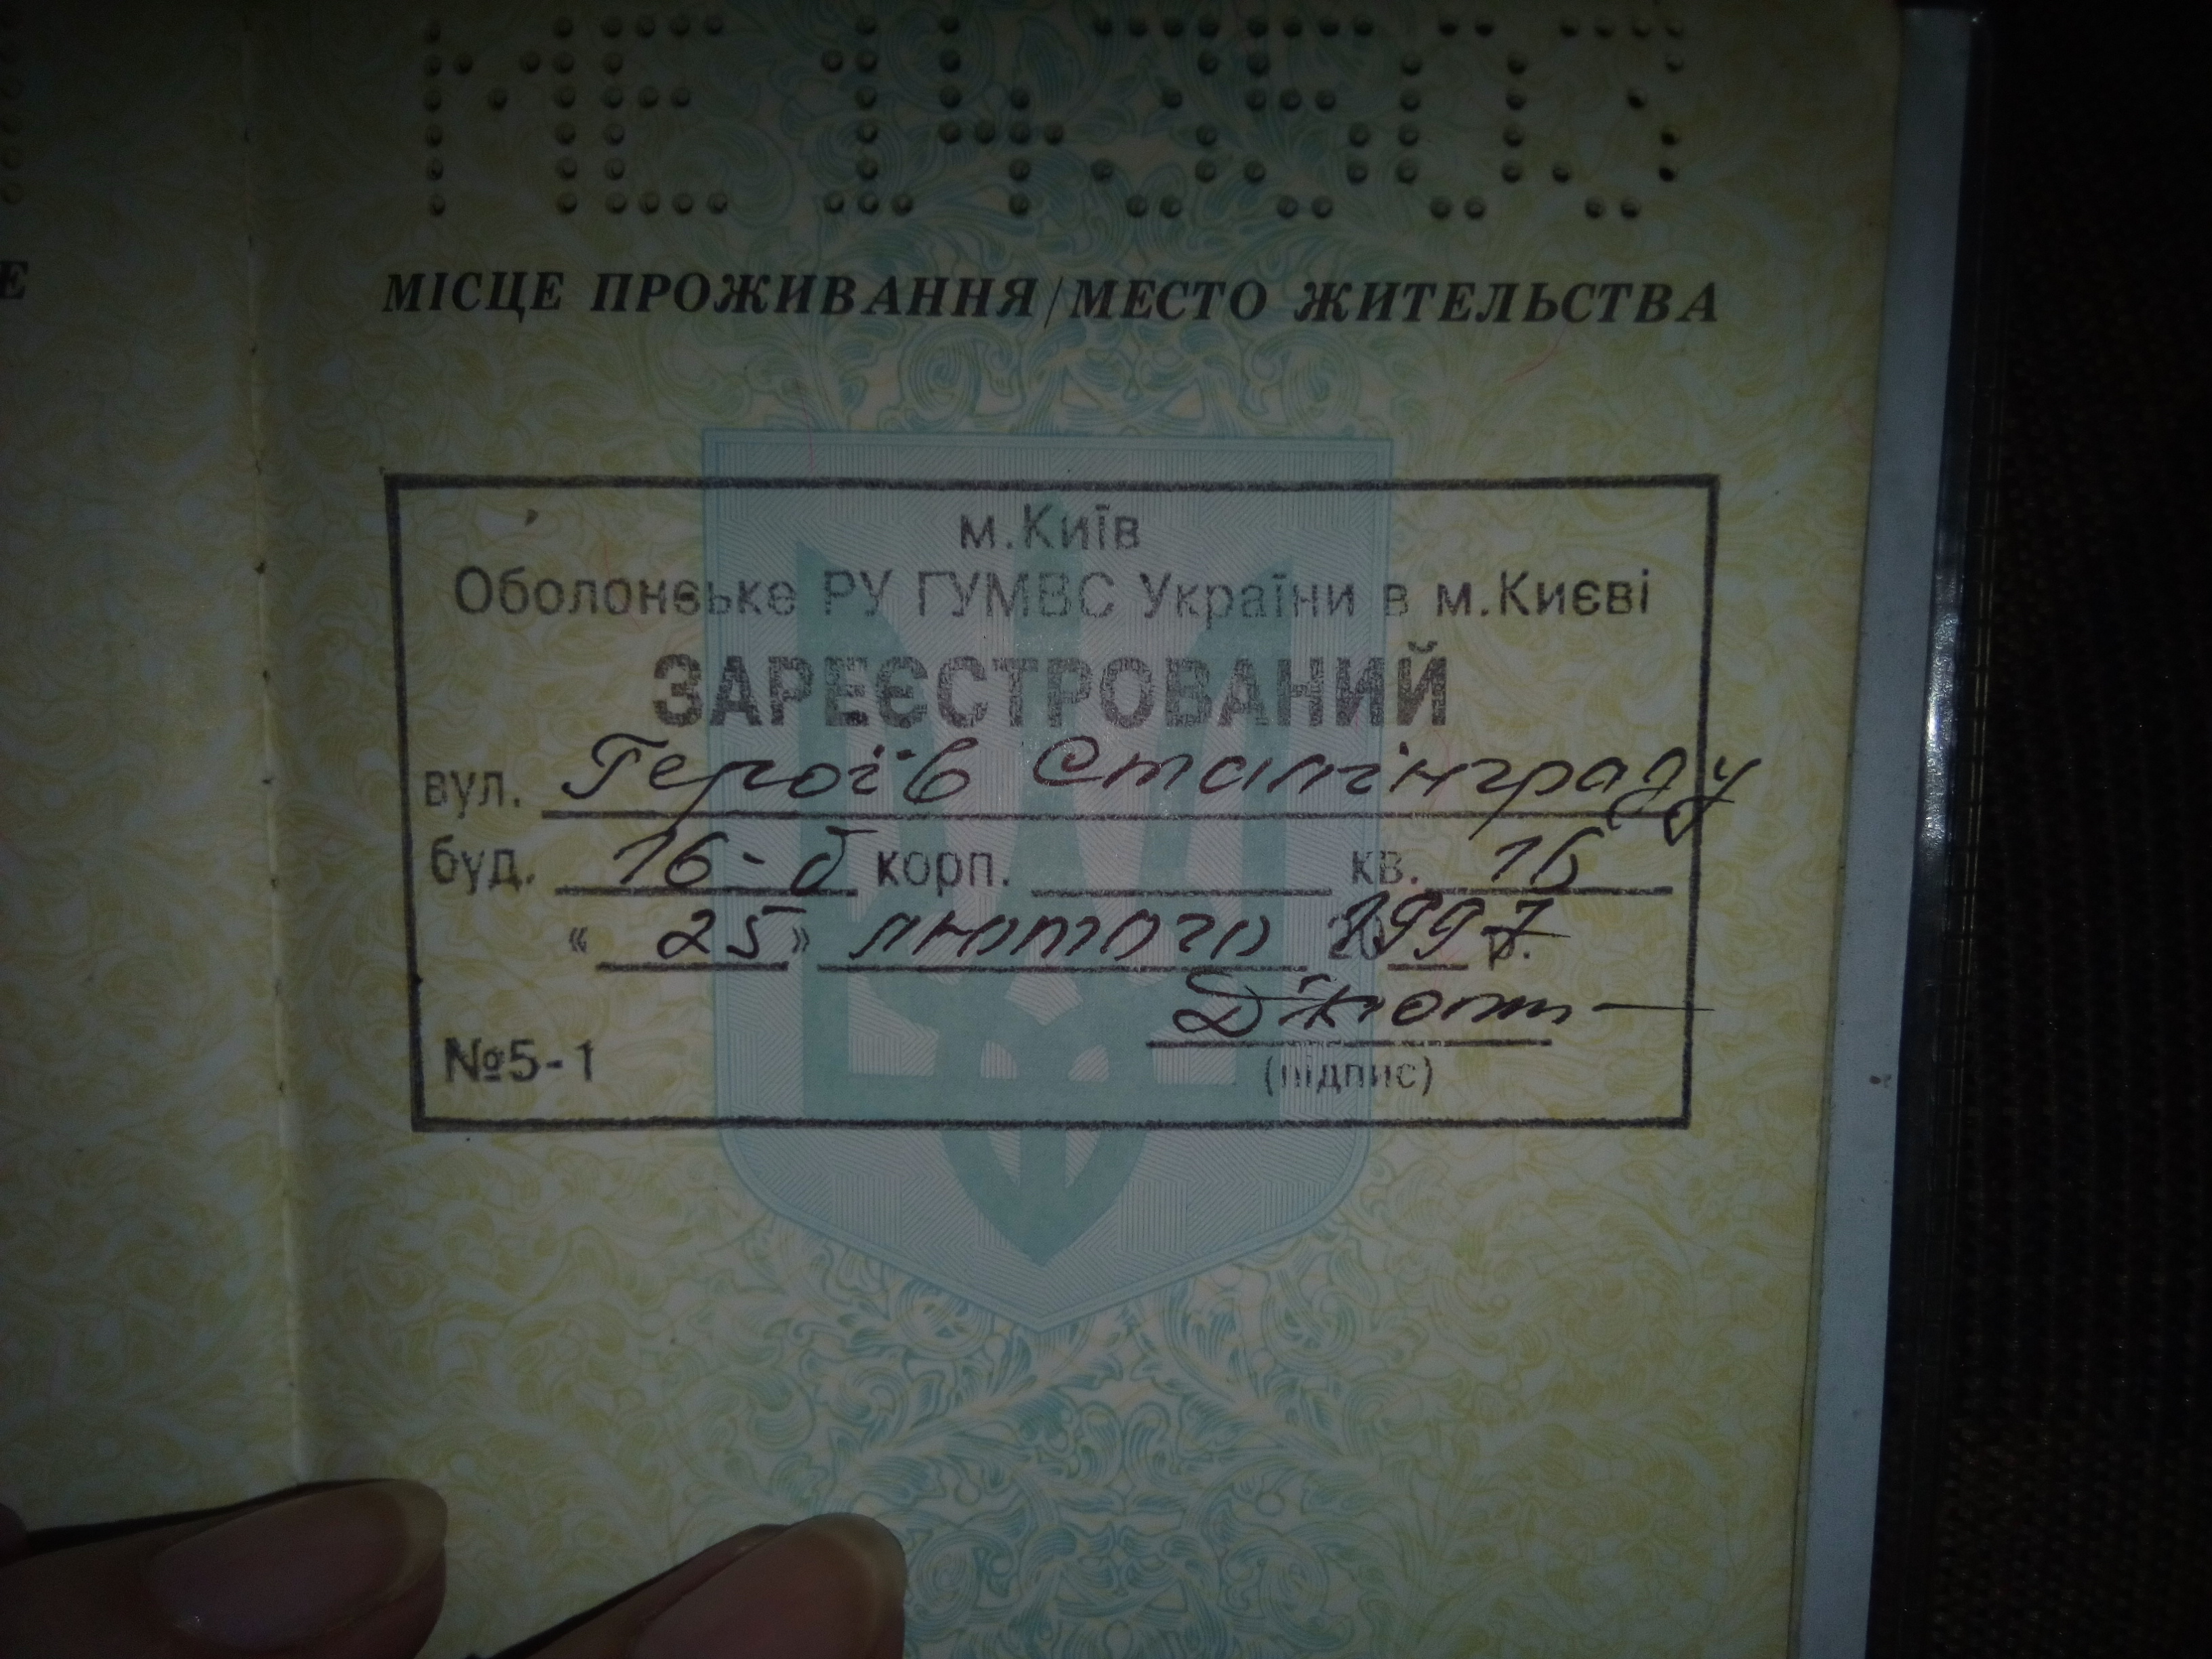 МІСЦЕ ПРОЖИВАННЯ/МЕСТО ЖИТЕЛЬСТВА
м.Київ
Оболонське РУ ГУМВС України в м.Києві
ЗАРЕЄСТРОВАНИЙ
вул. Героїв Сталінграду
буд. 16-б корп. кв. 16
« 25 » лютого 1997 р.
(підпис)
№5-1